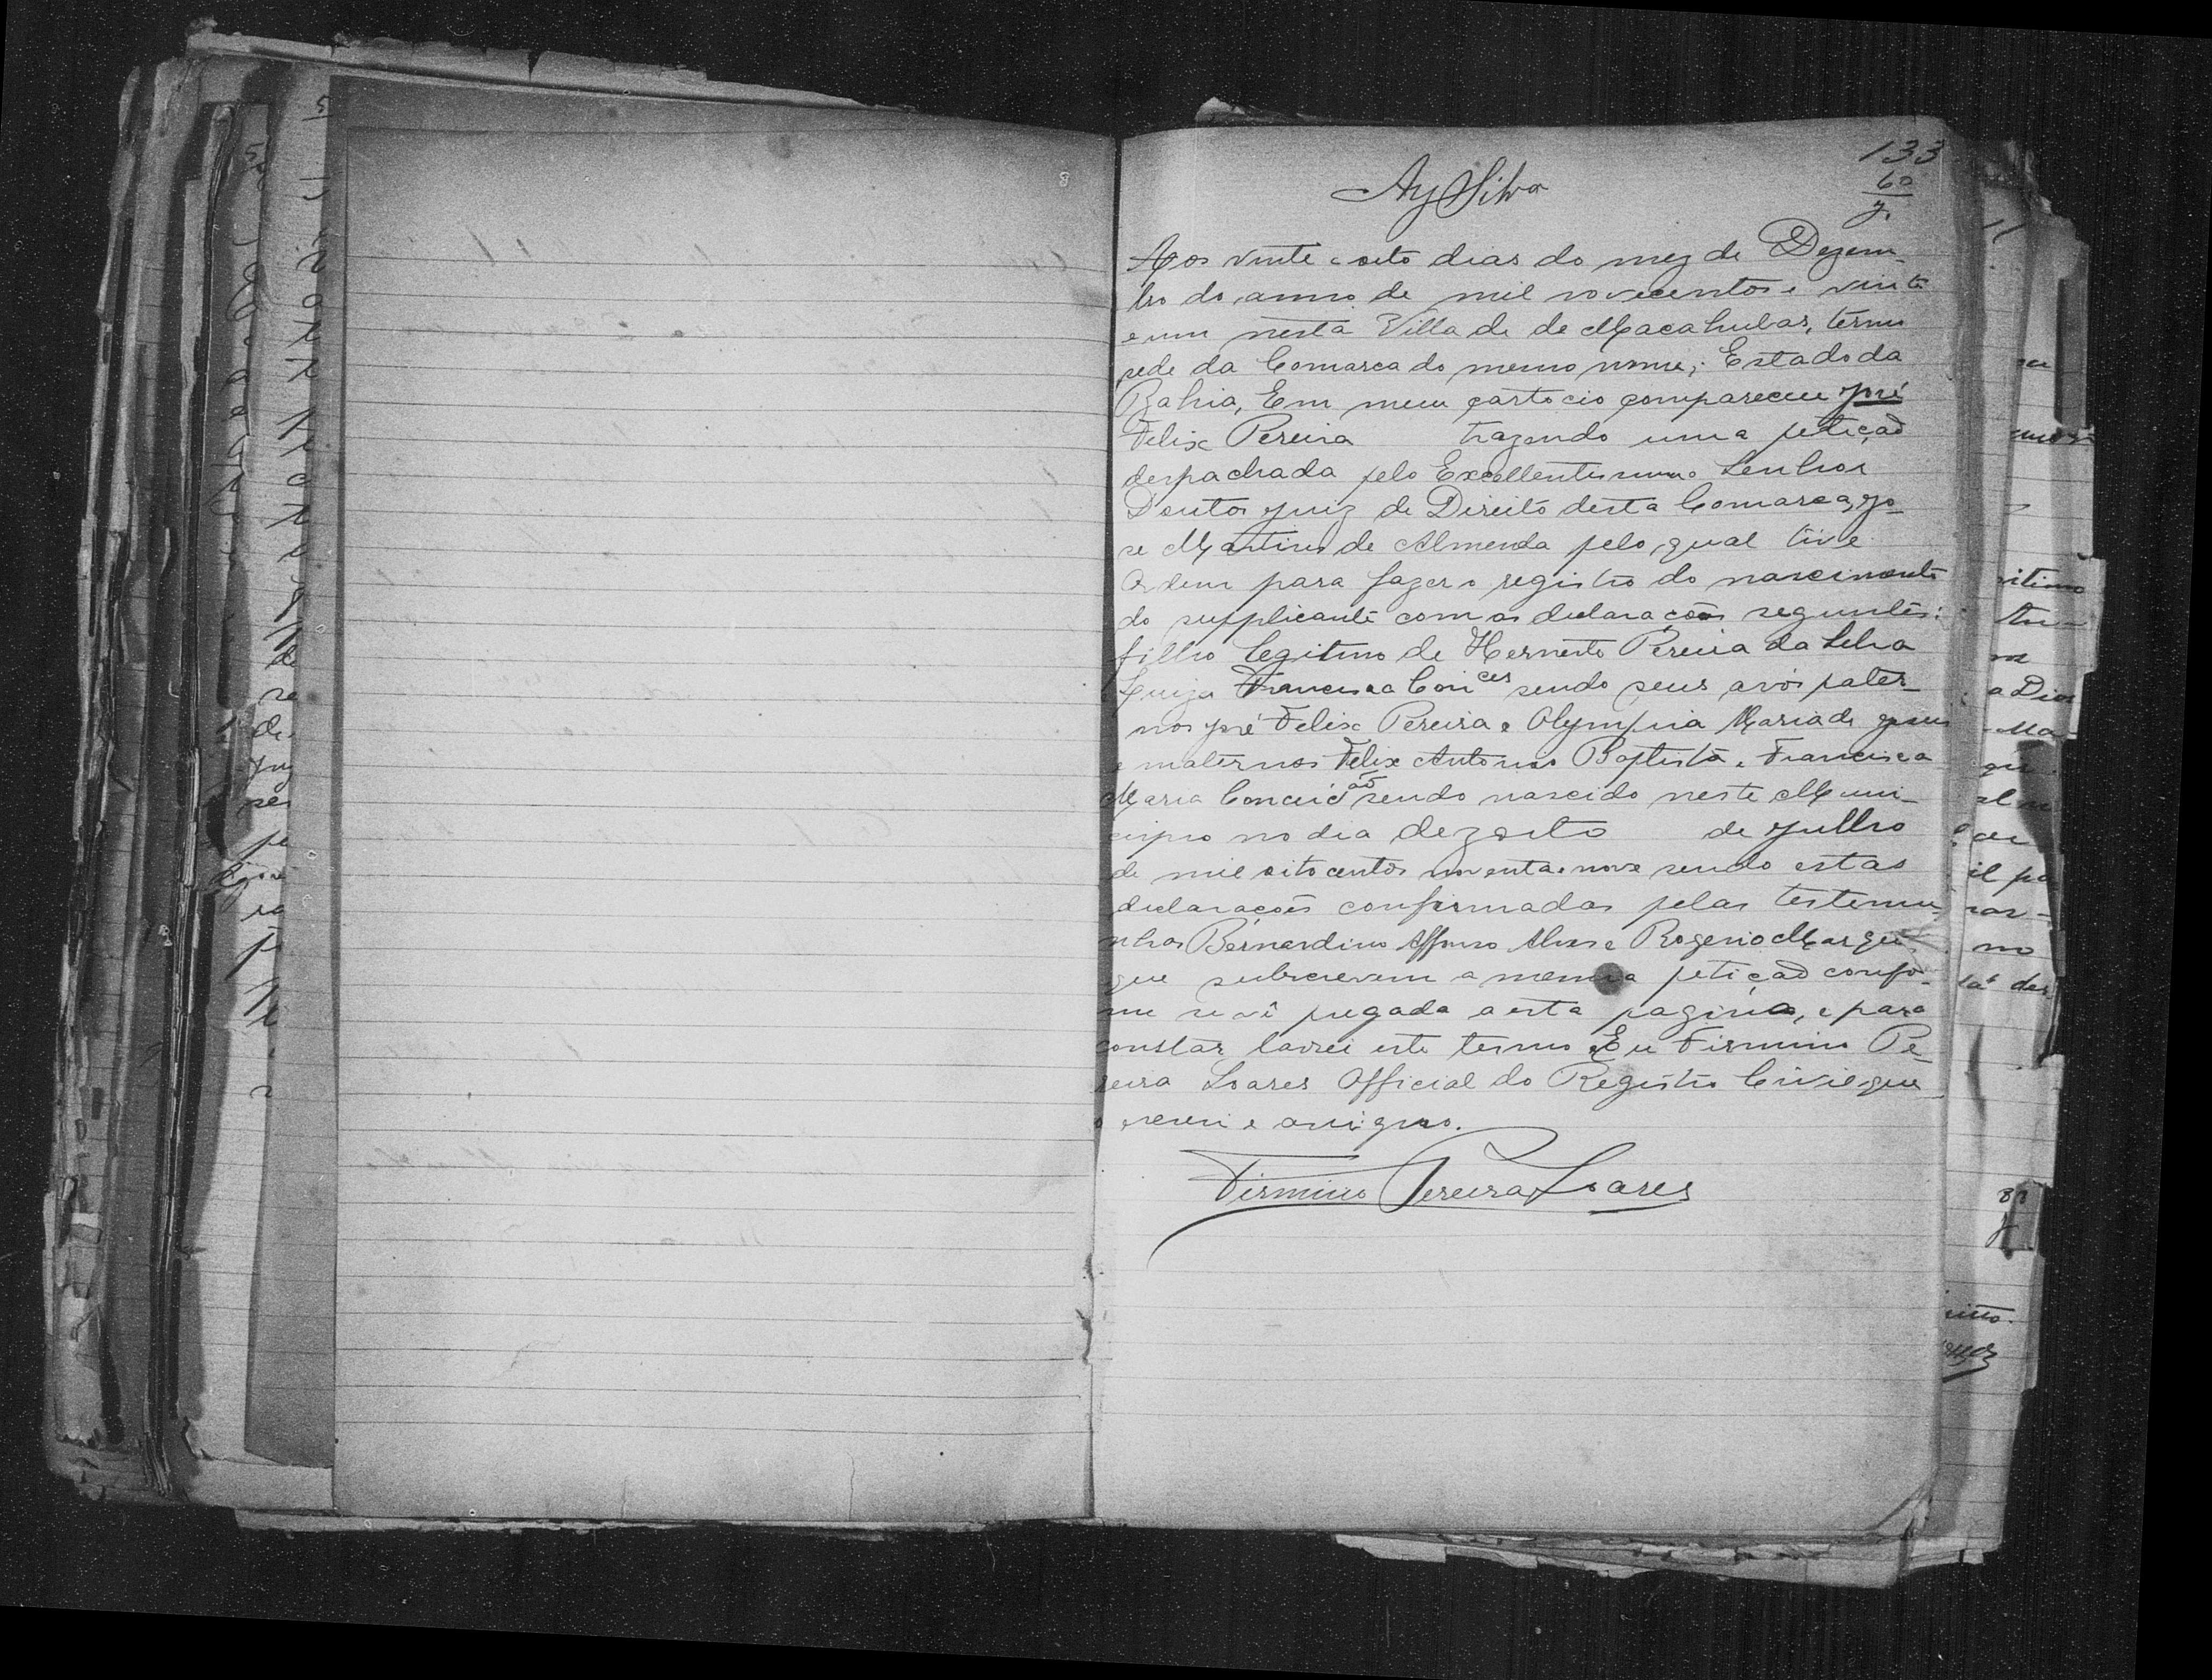 133
60
AySilva
Aos vinte e oito dias do mez de Dezem-
bro do anno de mil novecentos e vinte
e um nesta Villa de de Macahubas, termo
sede da Comarca do mesmo nome; Estado da
Bahia, Em meu cartocio compareceu José
Felix Pereira trazendo uma petição
despachada pelo Excellentissimo Senhor
Doutor Juiz de Direito desta Comarca, Jo-
se Martins de Almeida pelo qual tive
Ordem para fazer o registro do nascimento
do supplicante com as declarações seguintes:
filho legitimo de Hernesto Pereira da Silva
Luiza Francisca Con ces sendo seus avós pater-
nos José Felix Pereira e Olympia Maria de Jesus
e maternos Felix Antonio Baptista e Francisca
Maria Conceição sendo nascido neste Muni-
cipio no dia dezoito de Julho
de mil oitocentos noventa e nove sendo estas
declarações confirmadas pelas testemu-
nhas Bernardino Affonso Alves e Rogerio Marques
que subscrevem a mesma petição confo-
me se vê pregada a esta pagina, e para
constar lavrei este termo. Eu Firmino Pe-
reira Soares Official do Registro Civil que
o escrevi e assigno.
Firmino Pereira Soares